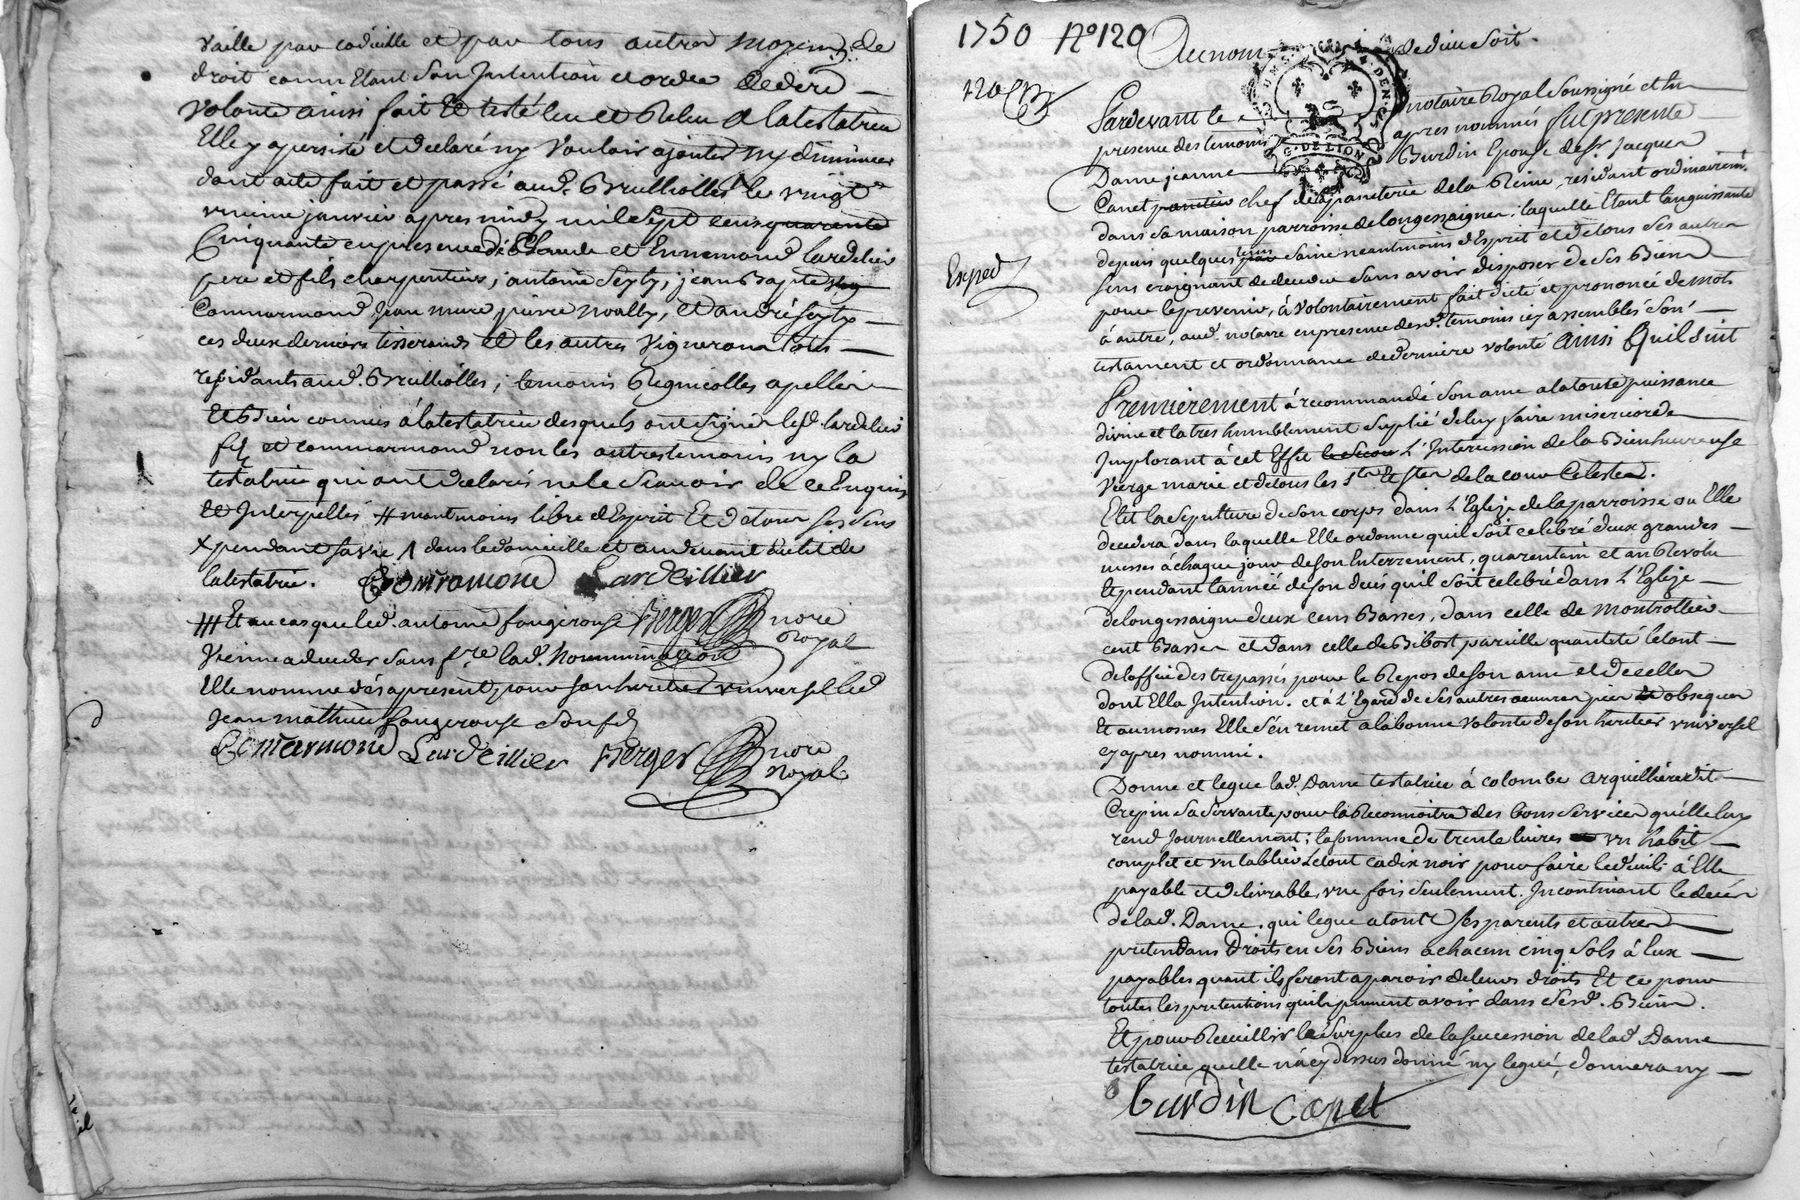 vaille par codicille et par tous autres moyens de
droit comme Etant son Intention et ordre de dere
volonté ainsi fait Et testé leu et Releu a latestatrice
Elle y a persisté et declaré ny vouloir ajouter ny diminuer
dont acte fait et passé aud. Brulliolles le vingt
vnieme janvier apres midy mil sept cens quarente
Cinquante en presence de Claude et Ennemond Lardelier
pere et fils charpentiers, antoine Seyty, jean Baptiste
Commarmond jean mure, pierre noally, et andré Seyty
ces deux derniers tisserands et les autres vignerons tous
residants aud. Brulliolles, temoins Regnicolles apellés
Et bien connus à latestatrice desquels ont signé led. Lardelier
fils et commarmond non les autres temoins ny la
testatrice qui ont declarés ne le Scavoir de ce Enquis
Et Interpellés # neantmoins libre d'Esprit Et de tous ses sens
x pendant sa vie /\ dans le domicille et au devant du lit de
latestatrice. Commarmond Lardeillier
Berger nore Royal
### Et au cas que led. antoine fougerouse
vienne a deceder sans f.re lad. nommination
Elle nomme dés apresent pour son heritier vniversel led
jean mathieu fougerouse son fils
Commarmond Lardeillier Berger nore Royal
1750 N° 120
120
Au nom de dieu soit.
Pardevant le notaire Royal soussigné et en
presence des temoins apres nommés fut presente
Dame jeanne Burdin Epouse de Sr jacques
Canet panetier chef de la paneterie de la Reine, residant ordinairemt.
dans sa maison parroisse de longessaigne, laquelle Etant languissante
depuis quelques tems saine neantmoins d'Esprit et de tous ses autres
sens craignant de deceder sans avoir disposer de ses Biens
pour le prevenir, à volontairement fait dicté et prononcé de mot
à autre, aud. notaire en presence desd. temoins icy assemblés son
testament et ordonnance de derniere volonté ainsi Quil suit
Exped
Premierement à recommandé son ame a la toute puissance
divine et la tres humblement suplié de luy faire misericorde
Implorant à cet Effet L'Intercession de la Bienheureuse
vierge marie et de tous les sts Et stes de la cour Celeste.
Elit la sepulture de son corps dans L'Eglize de la parroisse ou Elle
decedera, dans laquelle Elle ordonne quil soit celebré deux grandes
messes à chaque jour de son Enterrement, quarentain et an Revolu
Et pendant l'année de son deces quil soit celebré dans L'Eglize
de longessaigne deux cens Basses, dans celle de montrottier
cent Basses et dans celle de Bibost pareille quantité le tout
de loffice des trepassés pour le Repos de son ame et de celles
dont Ella Intention. et à L'Egard de ses autres oeuvres pies obseques
Et aumones Elle s'en remet a la bonne volonté de son heritier vniversel
cy apres nommé.
Donne et legue lad. Dame testatrice à colombe arquilliere dit
Crepin sa servante pour la Reconnoitre des bons services qu'elle luy
rend journellement, la somme de trente livres vn habit
complet et vn tablier le tout cadix noir pour faire le deuil à Elle
payable et delivrable, vne fois seulement. Incontinant le deces
de lad. Dame, qui legue a tous ses parents et autres
pretendans Droits en ses Biens a chacun cinq sols à Eux
payables quant ils seront aparoir de leurs droits Et ce pour
toutes les pretentions quils peuvent avoir dans sesd. Biens.
Et pour Recueillir le surplus de la succession de lad. Dame
testatrice quelle n'a cy dessus donné ny legué, donnera ny
burdin canet